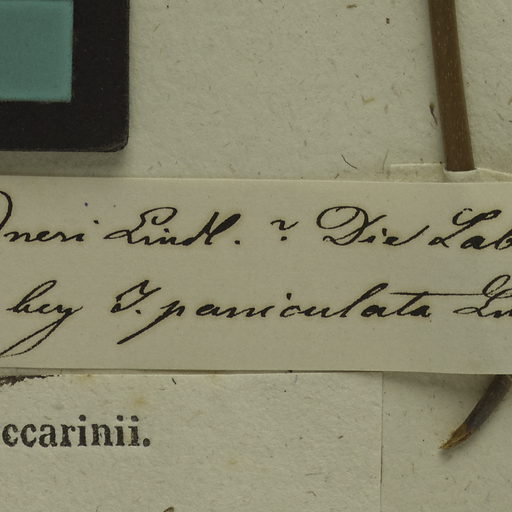 neri Lindl. ? Die Lab
bey T. paniculata Lin
ccarinii.